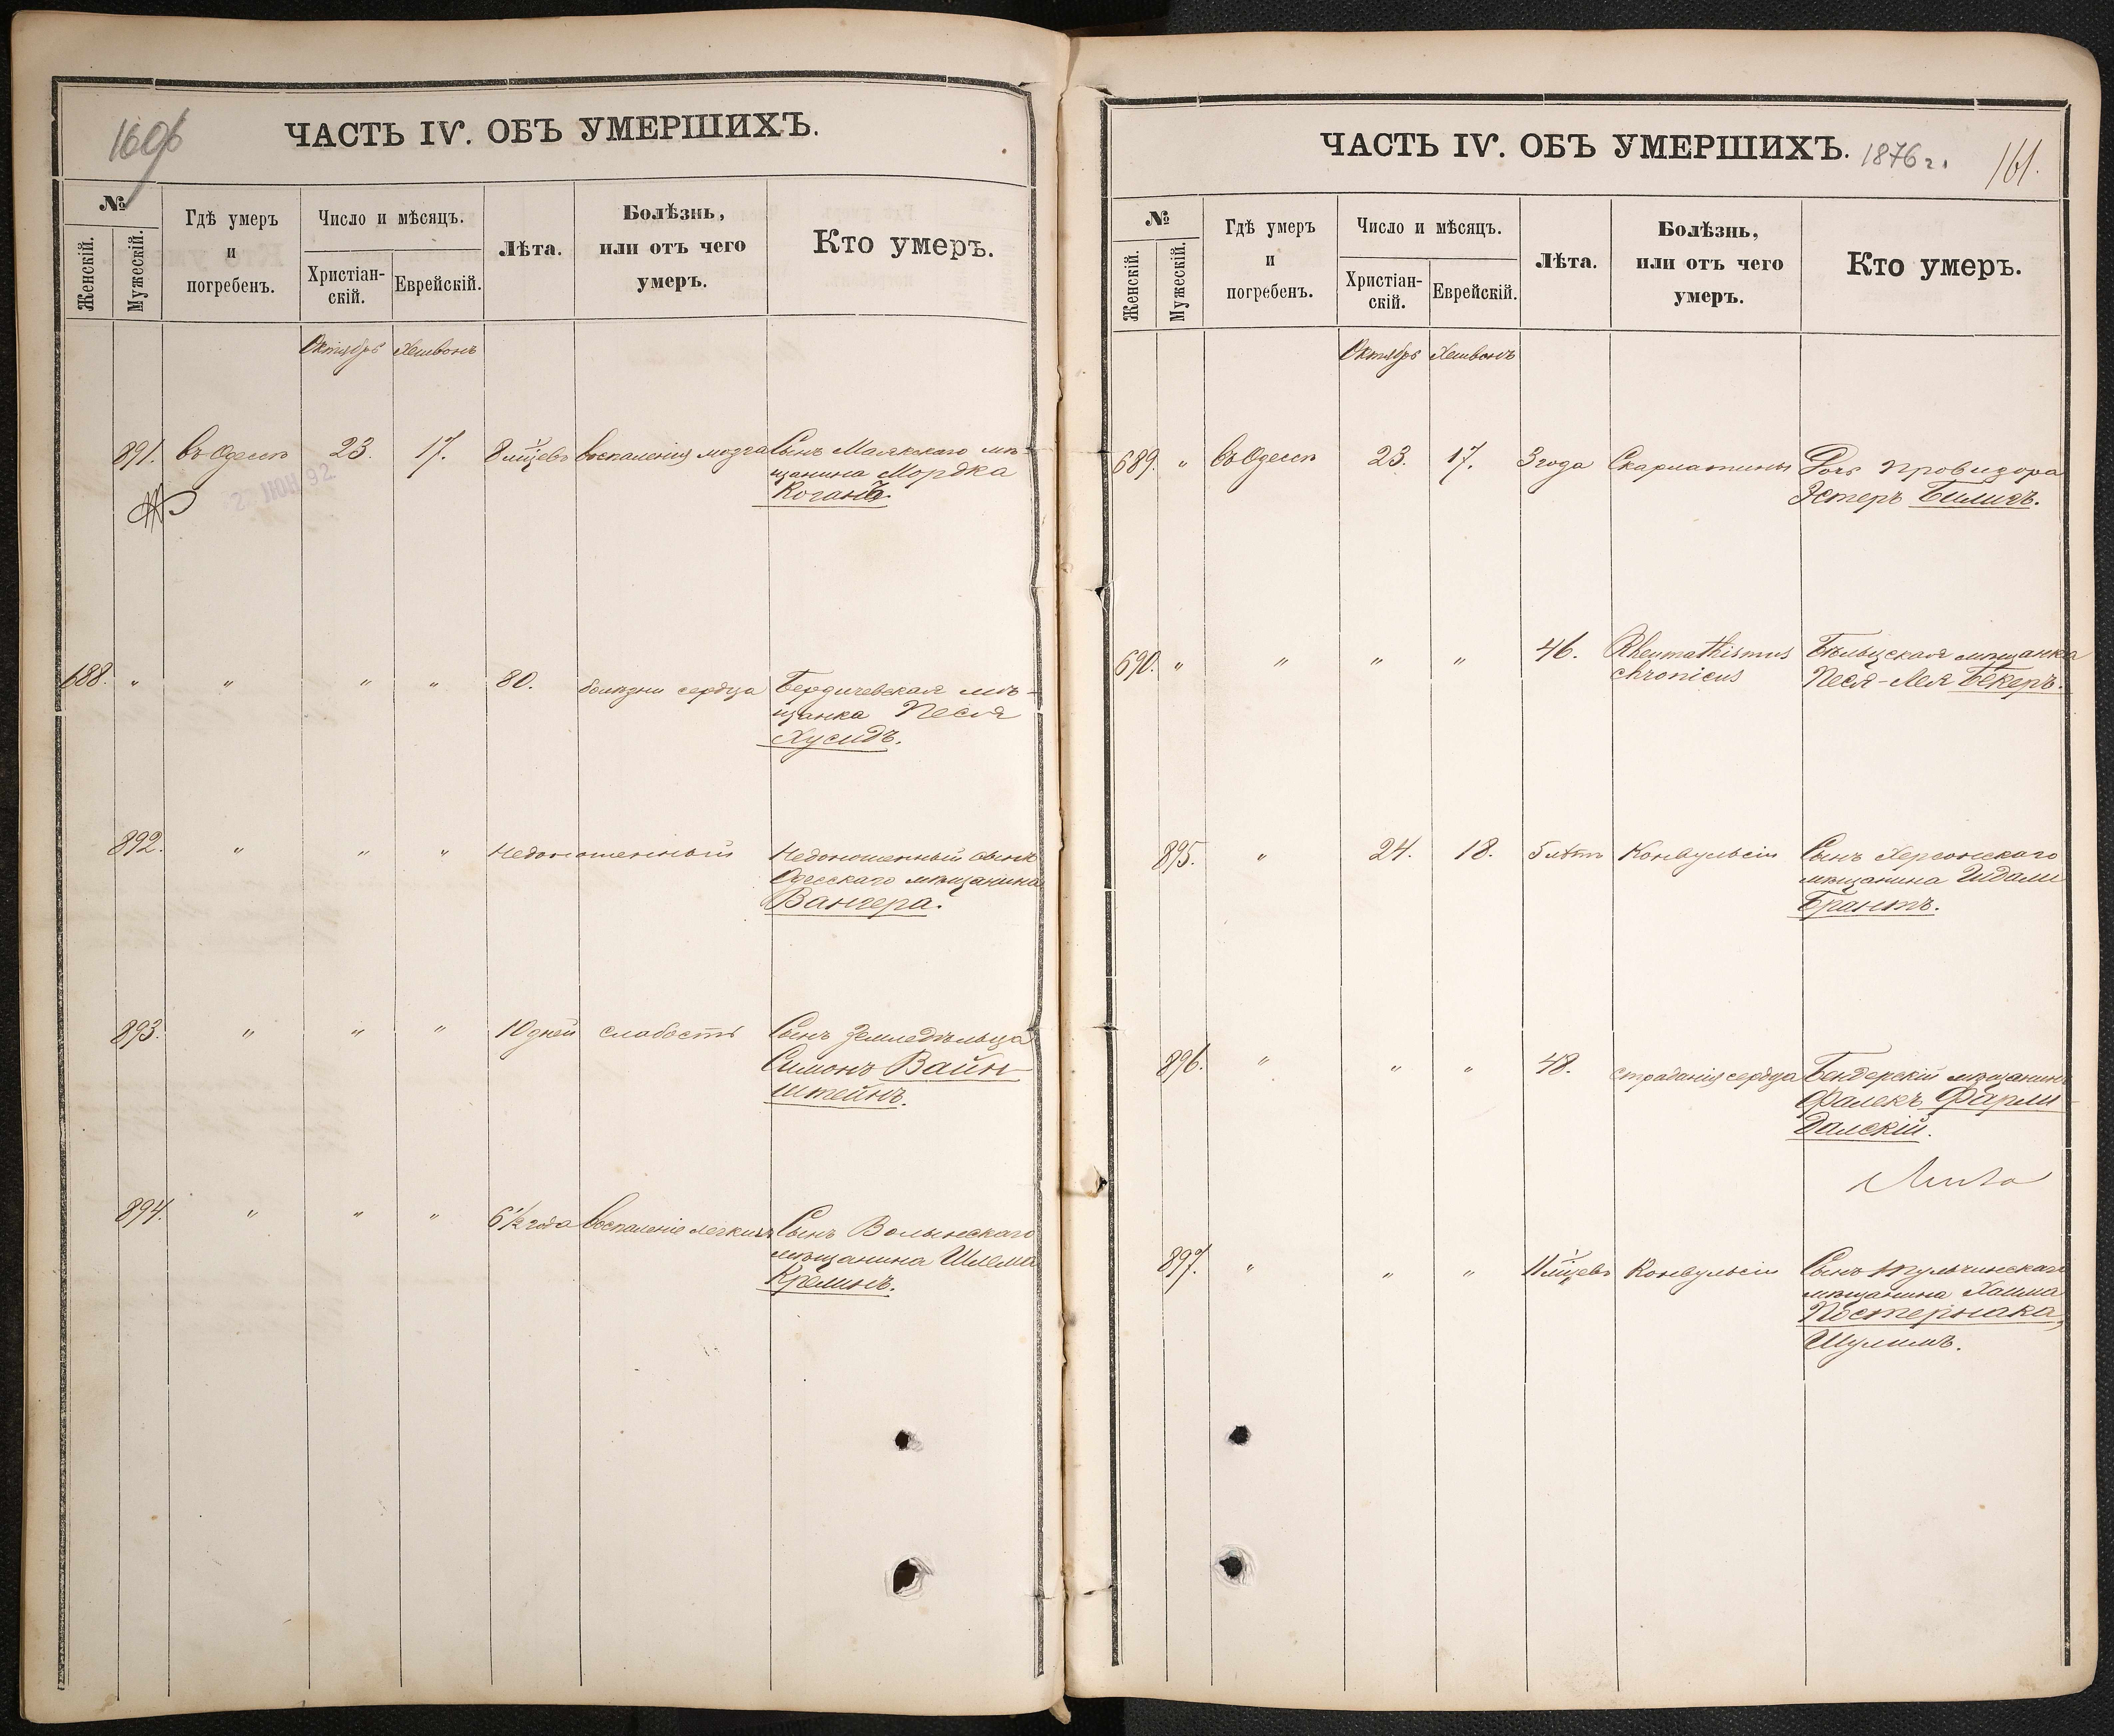 160б
ЧАСТЬ IV. ОБЪ УМЕРШИХЪ.
№
Женскій.
Мужескій.
Гдѣ умеръ
и
погребенъ.
Число и мѣсяцъ.
Христіан-
скій.
Еврейскій.
Лѣта.
Болѣзнь,
или отъ чего
умеръ.
Кто умеръ.
Октябрь Хешвонъ
891. въ Одессѣ 23. 17. 8 мѣцевъ воспаленія мозга Сынъ Маякскаго мѣ-
щанина Мордка
Коганъ.
2 ІЮН 92
688. " " " " 80. болѣзни сердца Бердичевская мѣ-
щанка Песя
Хусидъ.
892. " " " Недоношенный Недоношенный сынъ
Одесскаго мѣщанина
Вангера.
893. " " " 10 дней слабость Сынъ Земледѣльца
Симонъ Вайн-
штейнъ.
894. " " " 6 1/2 года воспаленіе легкихъ Сынъ Волынскаго
мѣщанина Шлема
Креминъ.
ЧАСТЬ IV. ОБЪ УМЕРШИХЪ. 1876 г. 161.
№
Женскій.
Мужескій.
Гдѣ умеръ
и
погребенъ.
Число и мѣсяцъ.
Христіан-
скій.
Еврейскій.
Лѣта.
Болѣзнь,
или отъ чего
умеръ.
Кто умеръ.
Октябрь Хешвонъ
689. " въ Одессѣ 23. 17. 3 года Скарлатины Дочь провизора
Эстеръ Билигъ.
690. " " " " 46. Rheumathismus Бѣльцская мѣщанка
chronicus Песя-Лея Бекеръ.
895. " 24. 18. 5 лѣтъ Конвульсіи Сынъ Херсонскаго
мѣщанина Шдали
Брантъ.
896. " " " 48. страданія сердца Бендерскій мѣщанинъ
Фалекъ Фарми-
далскій.
897. " " " 11 мѣцевъ Конвульсіи Сынъ Тульчинскаго
мѣщанина Хаима
Постернака,
Шулимъ.